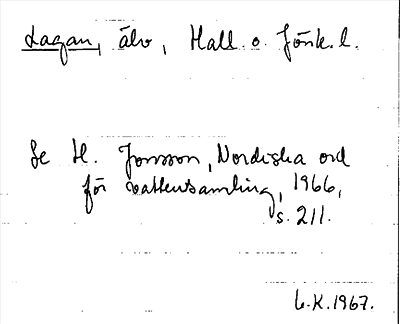 Lagan, älv, Hall. o. Jönk. l.
Se H. Jonsson, Nordiska ord
för vattensamling, 1966,
s. 211.
L.K. 1967.